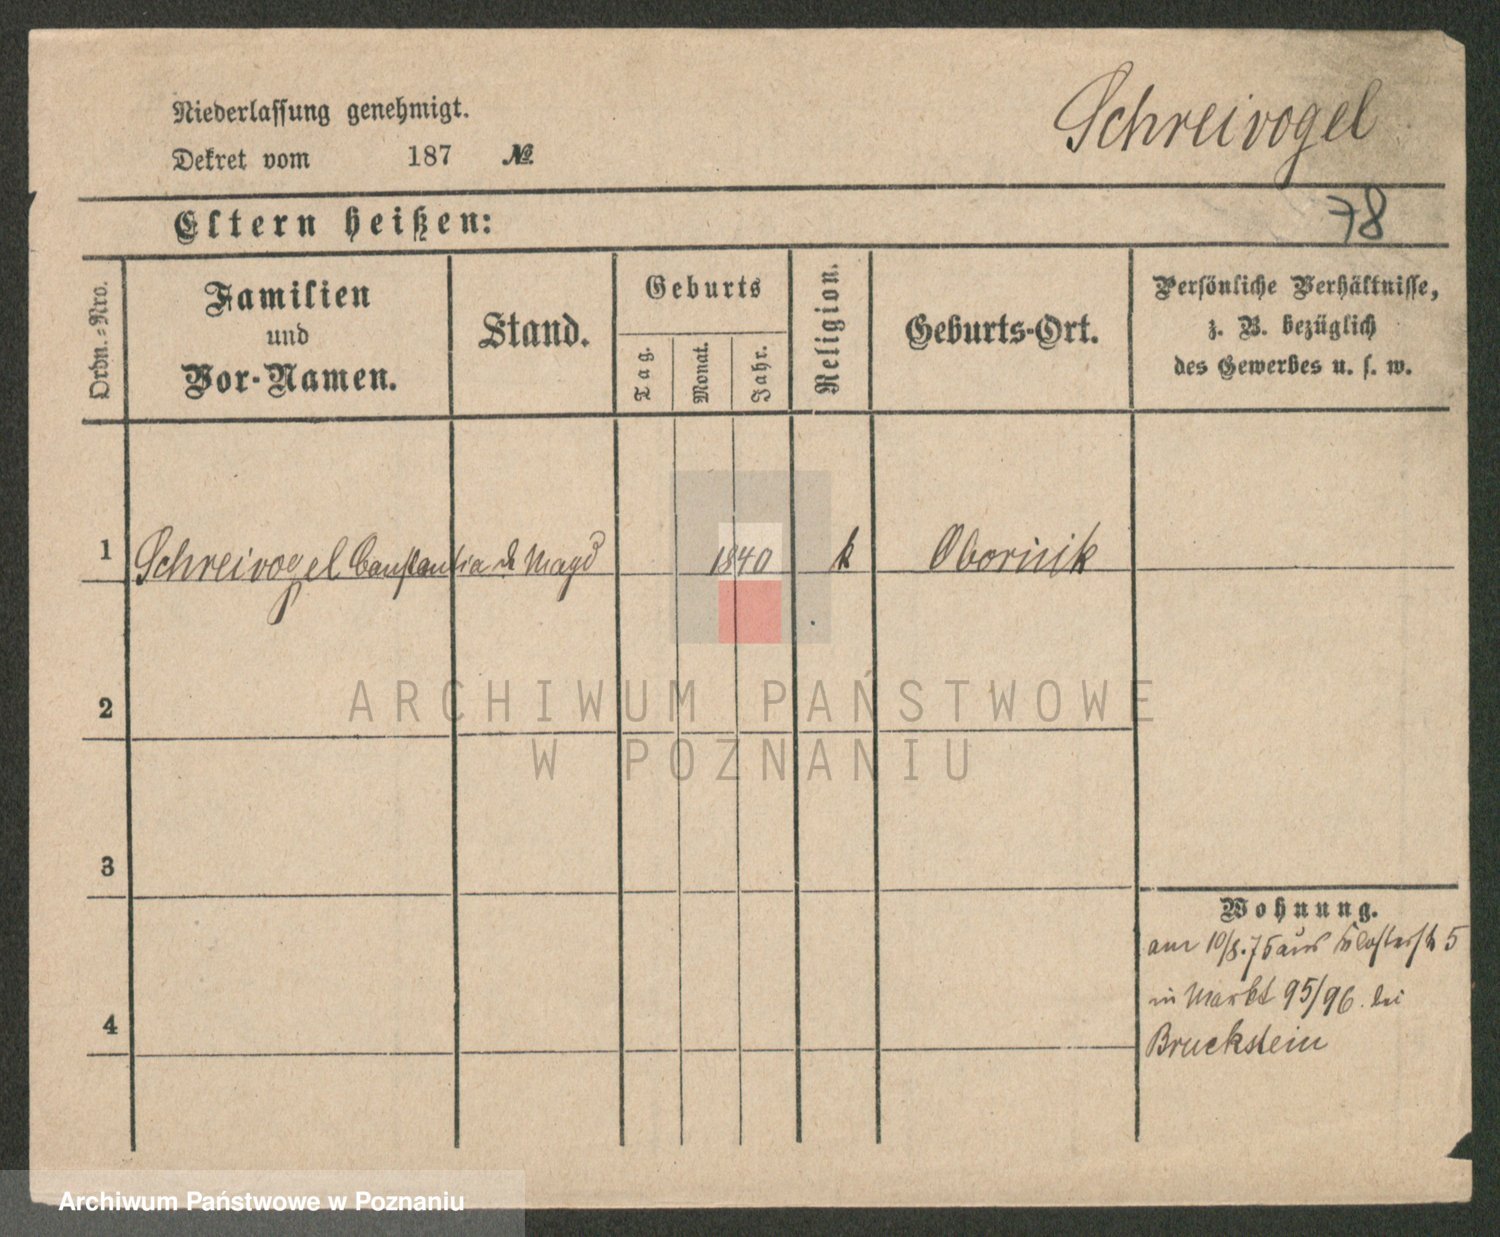 Schreivogel
Niederlassung genehmigt.
Dekret vom 187 №
Eltern heißen:
78
Ordn.-Nro.
Familien
und
Vor-Namen.
Stand.
Geburts
Tag.
Monat.
Jahr.
Religion.
Geburts-Ort.
Persönliche Verhältnisse,
z. B. bezüglich
des Gewerbes u. s. w.
1 Schreivogel Constantia Magd 1840 k Obornik
2
3
4
Wohnung.
am 10/8.75 aus Klosterstr 5
in Markt 95/96. bei
Bruckstein
ARCHIWUM PAŃSTWOWE
W POZNANIU
Archiwum Państwowe w Poznaniu